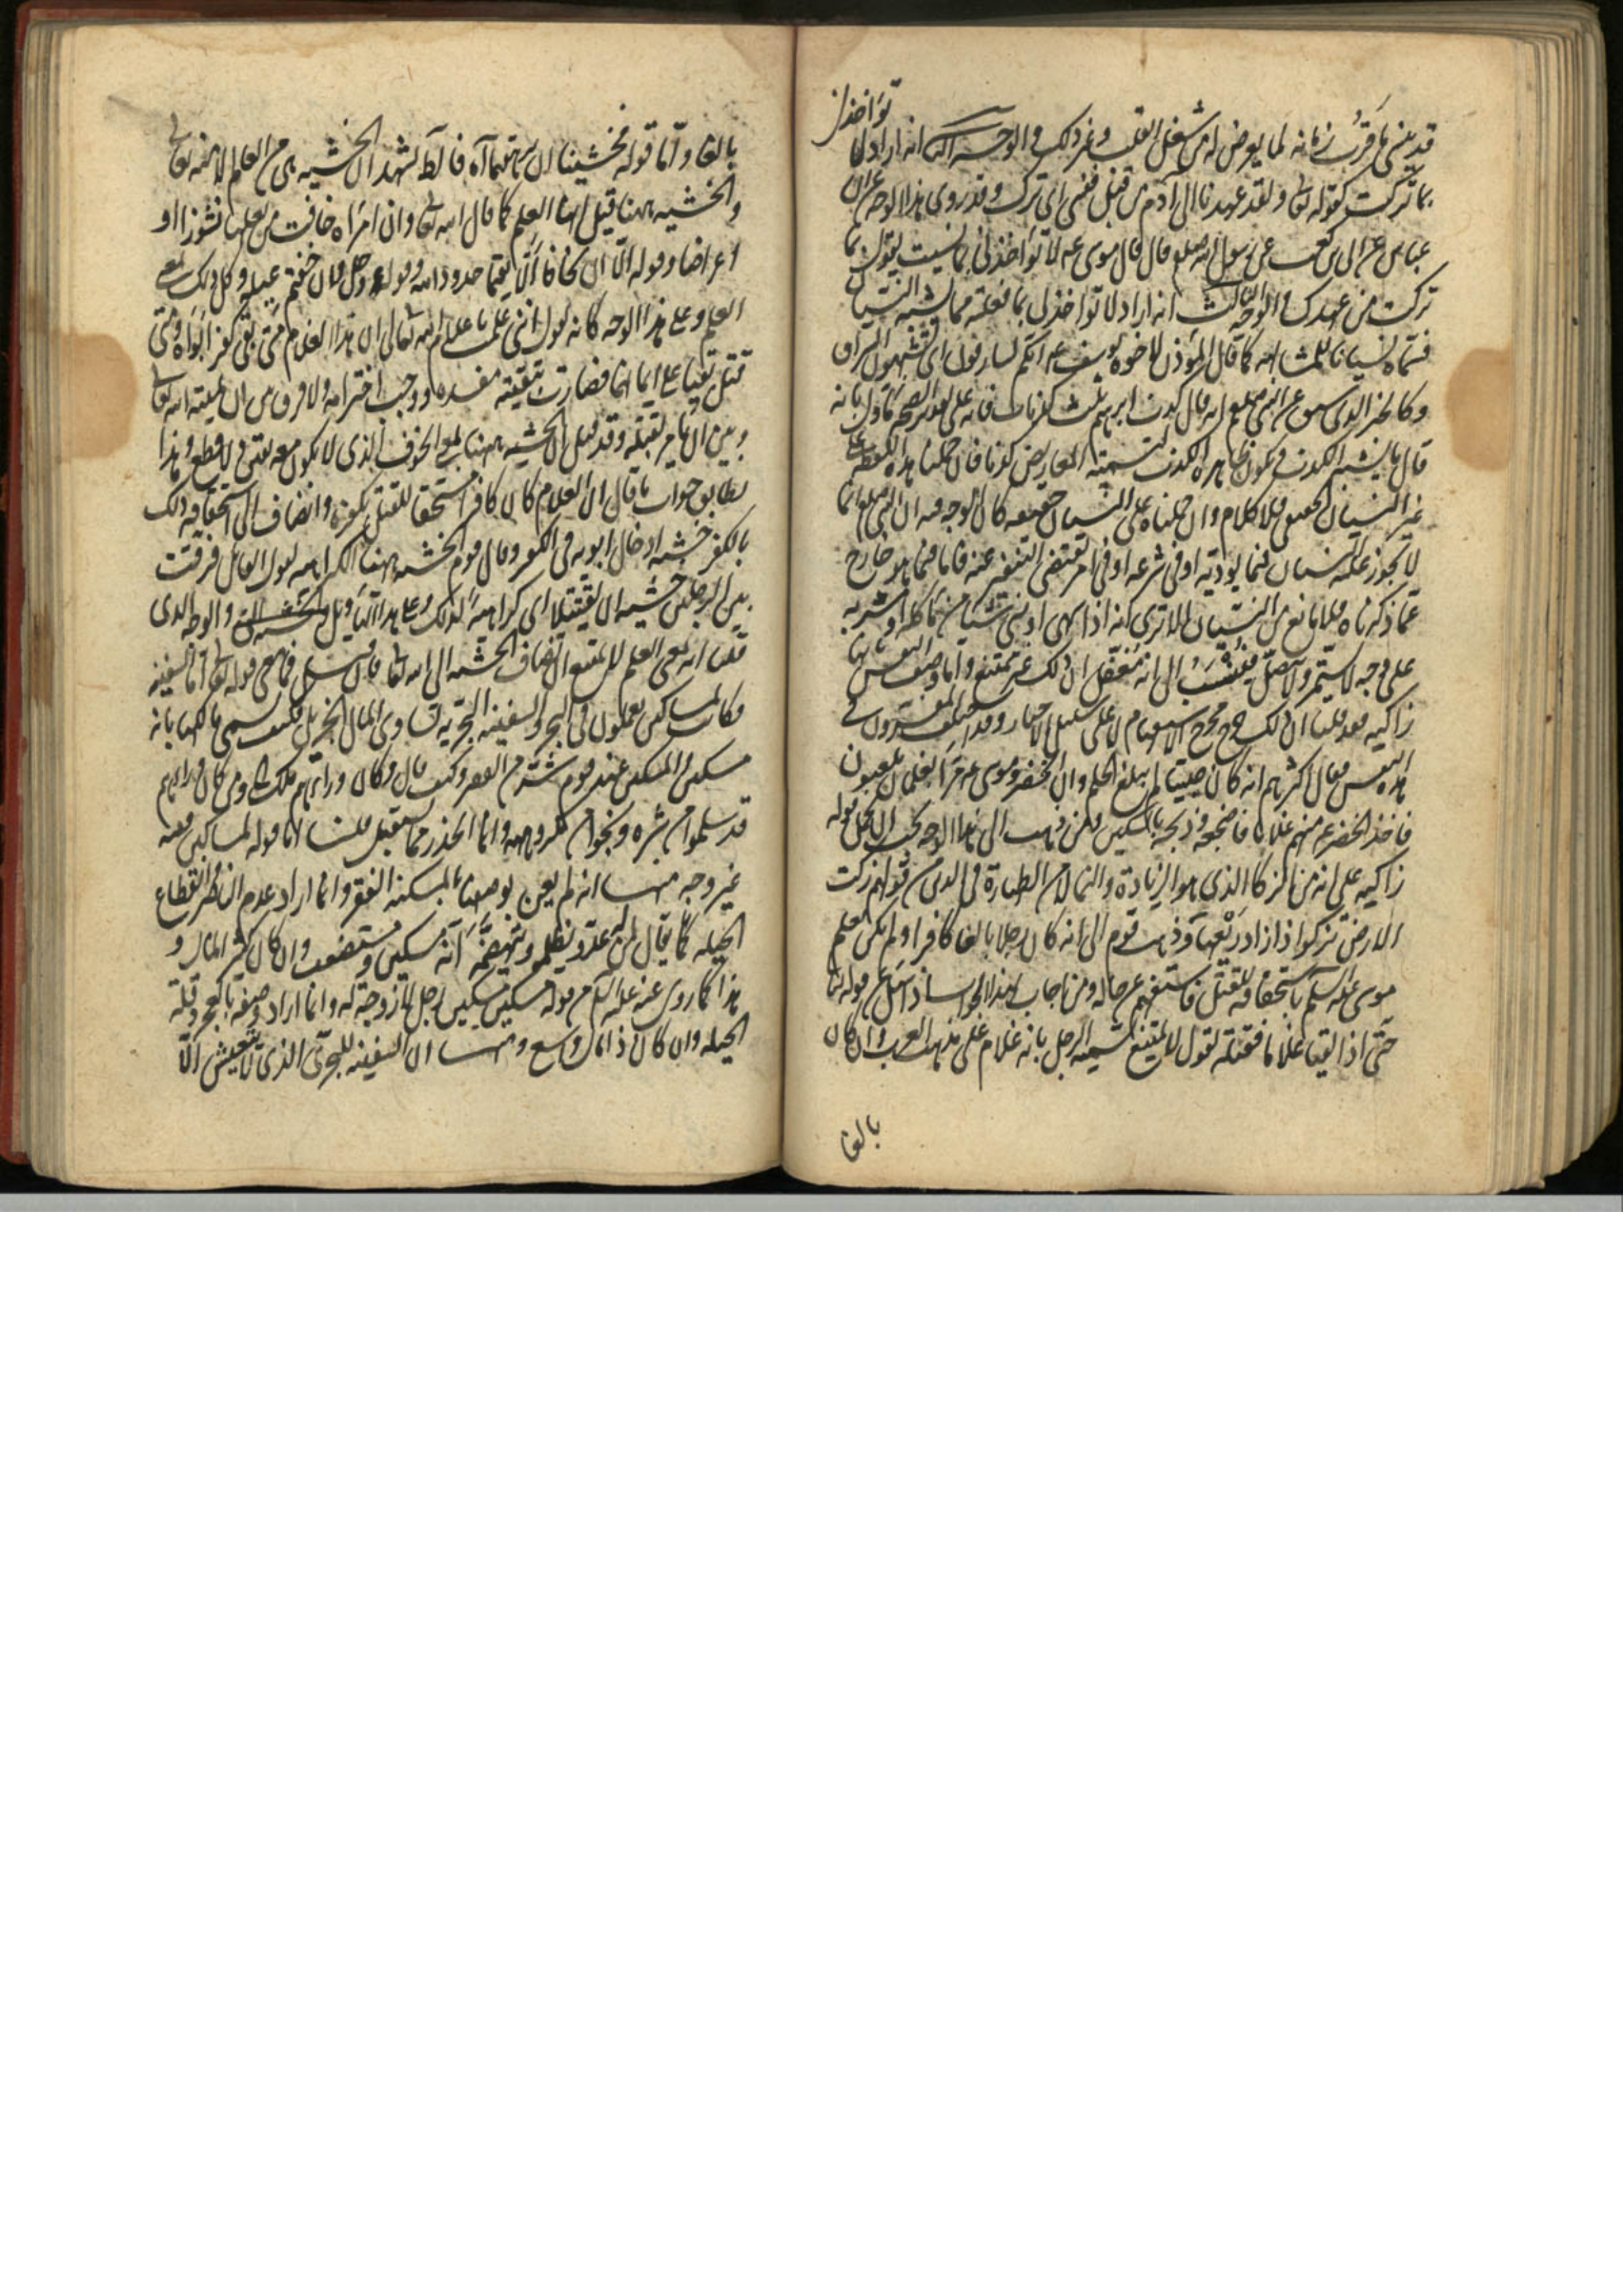 قد ينسى ما قرُب زمانه لما يعرض له من شغل القلب وغير ذلك والوجه الثاني انه اراد لا تؤاخذني
بما تركت كقوله تعا ولقد عهدنا الى ادم من قبل فنسى اى ترك وقد روى هذا الوجه عن ابن
عباس عن ابى بن كعب عن رسول الله صلعم قال قال موسى عم لا تؤاخذنى بما نسيت يقول بما
تركت من عهدك والوجه الثالث انه اراد لا تؤاخذنى بما فعلته مما يشبه النسيان
فسماه نسيانا للمشابهة كما قال المؤذن لاخوة يوسف عم انكم لسارقون اى تشبهون السراق
وكالخبر الذى عن النبى صلعم انه قال كذب ابرهيم ثلث كذبات
قال ما يشبه الكذب فيكون ظاهره الكذب المعاريض كذبا فان حملنا هذه اللفظة على
غير النسيان الحقيقى فلا كلام وان حملناه على النسيان حقيقة كان الوجه فيه ان النبى صلعم انما
لا يجوز عليه النسيان فيما يؤديه او فى شرعه او فى امر يقتضى التنفير عنه فاما فيما هو خارج
عما ذكرناه فلا مانع من النسيان الا ترى انه اذا سهى او نسى شيئا من مأكله او مشربه
على وجه لا يستمر ولا يتصل فيُنسَب الى انه مغفل ان ذلك غير ممتنع واما وصف النفس بانها
زاكيه فقد قلنا ان ذلك خرج مخرج الاستفهام لا على سبيل الاخبار وقد اختلف المفسرون فى
هذه النفس فقال اكثرهم انه كان صبيا لم يبلغ الحلم وان الخضر وموسى عم مرا بغلمان يلعبون
فاخذ الخضر عم منهم غلاما فاضجعه وذبحه بالسكين ومن ذهب الى هذا الوجه يجب ان يحمل قوله
زاكيه على انه من الزكا الذى هو الزيادة والنما لا من الطهارة فى الدين من قولهم زكت
الارض تزكوا اذا زاد ريعها وذهب قوم الى انه كان رجلا بالغا كافرا ولم يكن يعلم
موسى عليه السلم باستحقاقه للقتل فاستفهم عن حاله ومن اجاب بهذا الجواب اذا سئل عن قوله تعا
حتى اذا لقيا غلاما فقتله يقول لا يمتنع تسميه الرجل بانه غلام على مذهب العرب وان كان
بالغا
بالغا واما قوله فخشينا ان يرهقهما آه فالظ يشهد ان الخشيه هى من العالم لا منه تعالى
والخشيه ههنا قيل انها العلم كما قال الله تعا وان امراة خافت من بعلها نشوزا او
اعراضا وقوله الا ان يخافا الا يقيما حدود الله وقوله عز وجل فان خفتم عيله وكل ذلك بمعنى
العلم وعلى هذا الوجه كانه يقول اننى علمت باعلام الله تعالى ان هذا الغلام متى بقى كفر ابواه ومتى
قتل بقيا على ايمانهما فصارت تبقيته مفسده ووجب اخترامه ولا فرق بين ان يميته الله تعا
وبين ان يامر بقتله وقد قيل ان الخشيه ههنا بمعنى الخوف الذى لا يكون معه يقين ولا قطع وهذا
يطابق جواب من قال ان الغلام كان كافرا مستحقا للقتل بكفره وانضاف الى استحقاقه ذلك
بالكفر خشيه ادخال ابويه فى الكفر وقال قوم الخشيه ههنا الكراهيه يقول القائل فرقت
بين الرجلين خشيه ان يقتتلا اى كراهيةً لذلك وعلى هذا التاويل والوجه الذى
قلنا انه بمعنى العلم لا يمتنع ان يضاف الخشيه الى الله تعا فان قيل فما معنى قوله تعا اما السفينه
فكانت لمساكين يعملون فى البحر والسفينه البحريه تساوى المال الجزيل فكيف يسمى مالكها بانه
مسكين والمسكين عند قوم شر من الفقير وكيف قال وكان وراءهم ملك ومن كان وراءهم
قد سلموا من شره ونجوا من مكروهه وانما الحذر مما يستقبل قلنا اما قوله لمساكين ففيه
غير وجه منها انه لم يعن بوصفهم بالمسكنه الفقر وانما اراد عدم الناصر وانقطاع
الحيله كما يقال لمن له عدو يظلمه ويهضمه انه مسكين ومستضعف وان كان كثير المال و
هذا كما روى عنه عليه السلم من قوله مسكين مسكين رجل لا زوجة له وانما اراد وصفه بالعجز وقلة
الحيله وان كان ذا مال وسع ومنها ان السفينه للبحرى الذى لا يتعيش الا